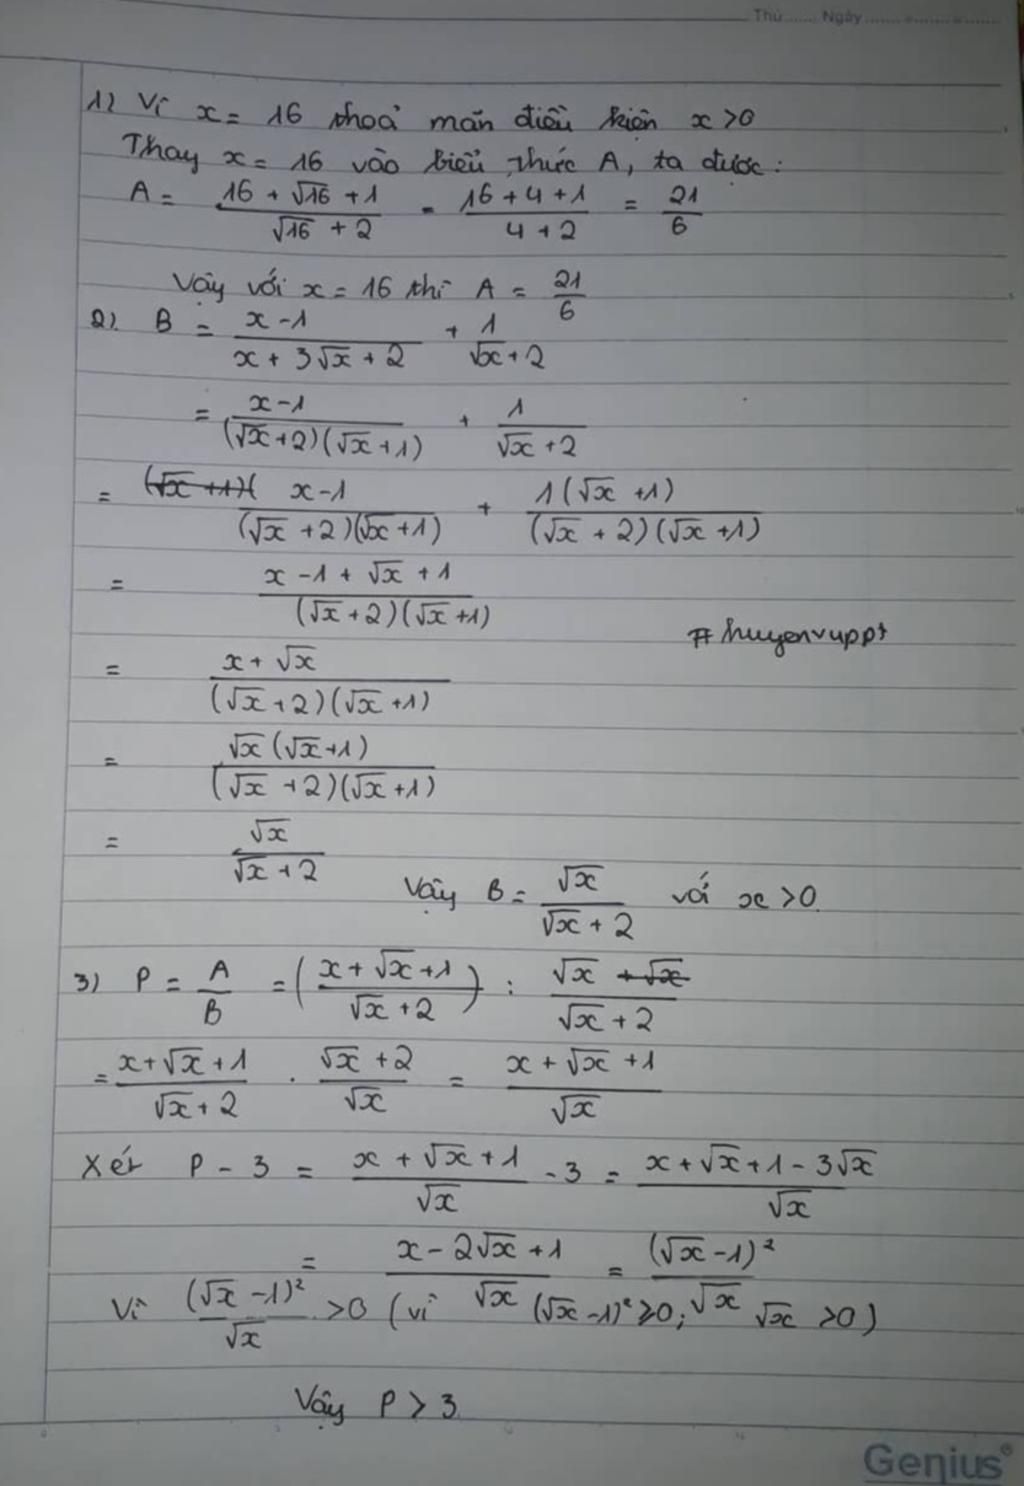 Thứ...... Ngày...................
1) Vì x = 16 thoả mãn điều kiện x > 0
Thay x = 16 vào biểu thức A, ta được:
A = (16 + √16 + 1)/(√16 + 2) = (16 + 4 + 1)/(4 + 2) = 21/6
Vậy với x = 16 thì A = 21/6
2). B = (x - 1)/(x + 3√x + 2) + 1/(√x + 2)
= (x - 1)/((√x + 2)(√x + 1)) + 1/(√x + 2)
= (x - 1)/((√x + 2)(√x + 1)) + 1(√x + 1)/((√x + 2)(√x + 1))
= (x - 1 + √x + 1)/((√x + 2)(√x + 1))
#huyenvuppt
= (x + √x)/((√x + 2)(√x + 1))
= √x(√x + 1)/((√x + 2)(√x + 1))
= √x/(√x + 2)
Vậy B = √x/(√x + 2) với x > 0
3) P = A/B = ((x + √x + 1)/(√x + 2)) : √x/(√x + 2)
= (x + √x + 1)/(√x + 2) . (√x + 2)/√x = (x + √x + 1)/√x
Xét P - 3 = (x + √x + 1)/√x - 3 = (x + √x + 1 - 3√x)/√x
= (x - 2√x + 1)/√x = (√x - 1)²/√x
Vì (√x - 1)²/√x > 0 (vì (√x - 1)² ≥ 0; √x > 0)
Vậy P > 3
Genius®